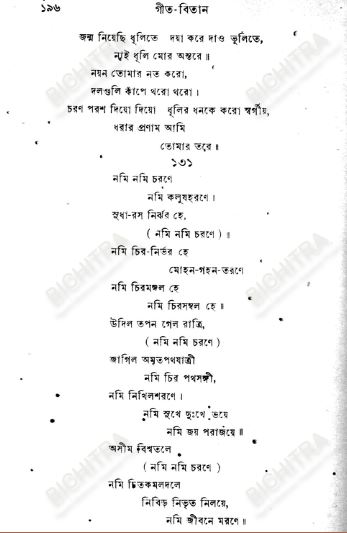 ১৯৬ গীত-বিতান
জন্ম নিয়েছি ধূলিতে দয়া করে দাও ভুলিতে,
নাই ধূলি মোর অন্তরে॥
নয়ন তোমার নত করো,
দলগুলি কাঁপে থরো থরো।
চরণ পরশ দিয়ো দিয়ো ধূলির ধনকে করো স্বর্গীয়,
ধরার প্রণাম আমি
তোমার তরে॥
১৩১
নমি নমি চরণে
নমি কলুষহরণে।
সুধা-রস নির্ঝর হে,
( নমি নমি চরণে )॥
নমি চির-নির্ভর হে
মোহন-গহন-তরণে
নমি চিরমঙ্গল হে
নমি চিরসম্বল হে॥
উদিল তপন গেল রাত্রি,
( নমি নমি চরণে )
জাগিল অমৃতপথযাত্রী
নমি চির পথসঙ্গী,
নমি নিখিলশরণে।
নমি সুখে দুঃখে ভয়ে
নমি জয় পরাজয়ে॥
অসীম বিশ্বতলে
( নমি নমি চরণে )
নমি চিতকমলদলে
নিবিড় নিভৃত নিলয়ে,
নমি জীবনে মরণে॥
BICHITRA
BICHITRA
BICHITRA
BICHITRA
BICHITRA
BICHITRA